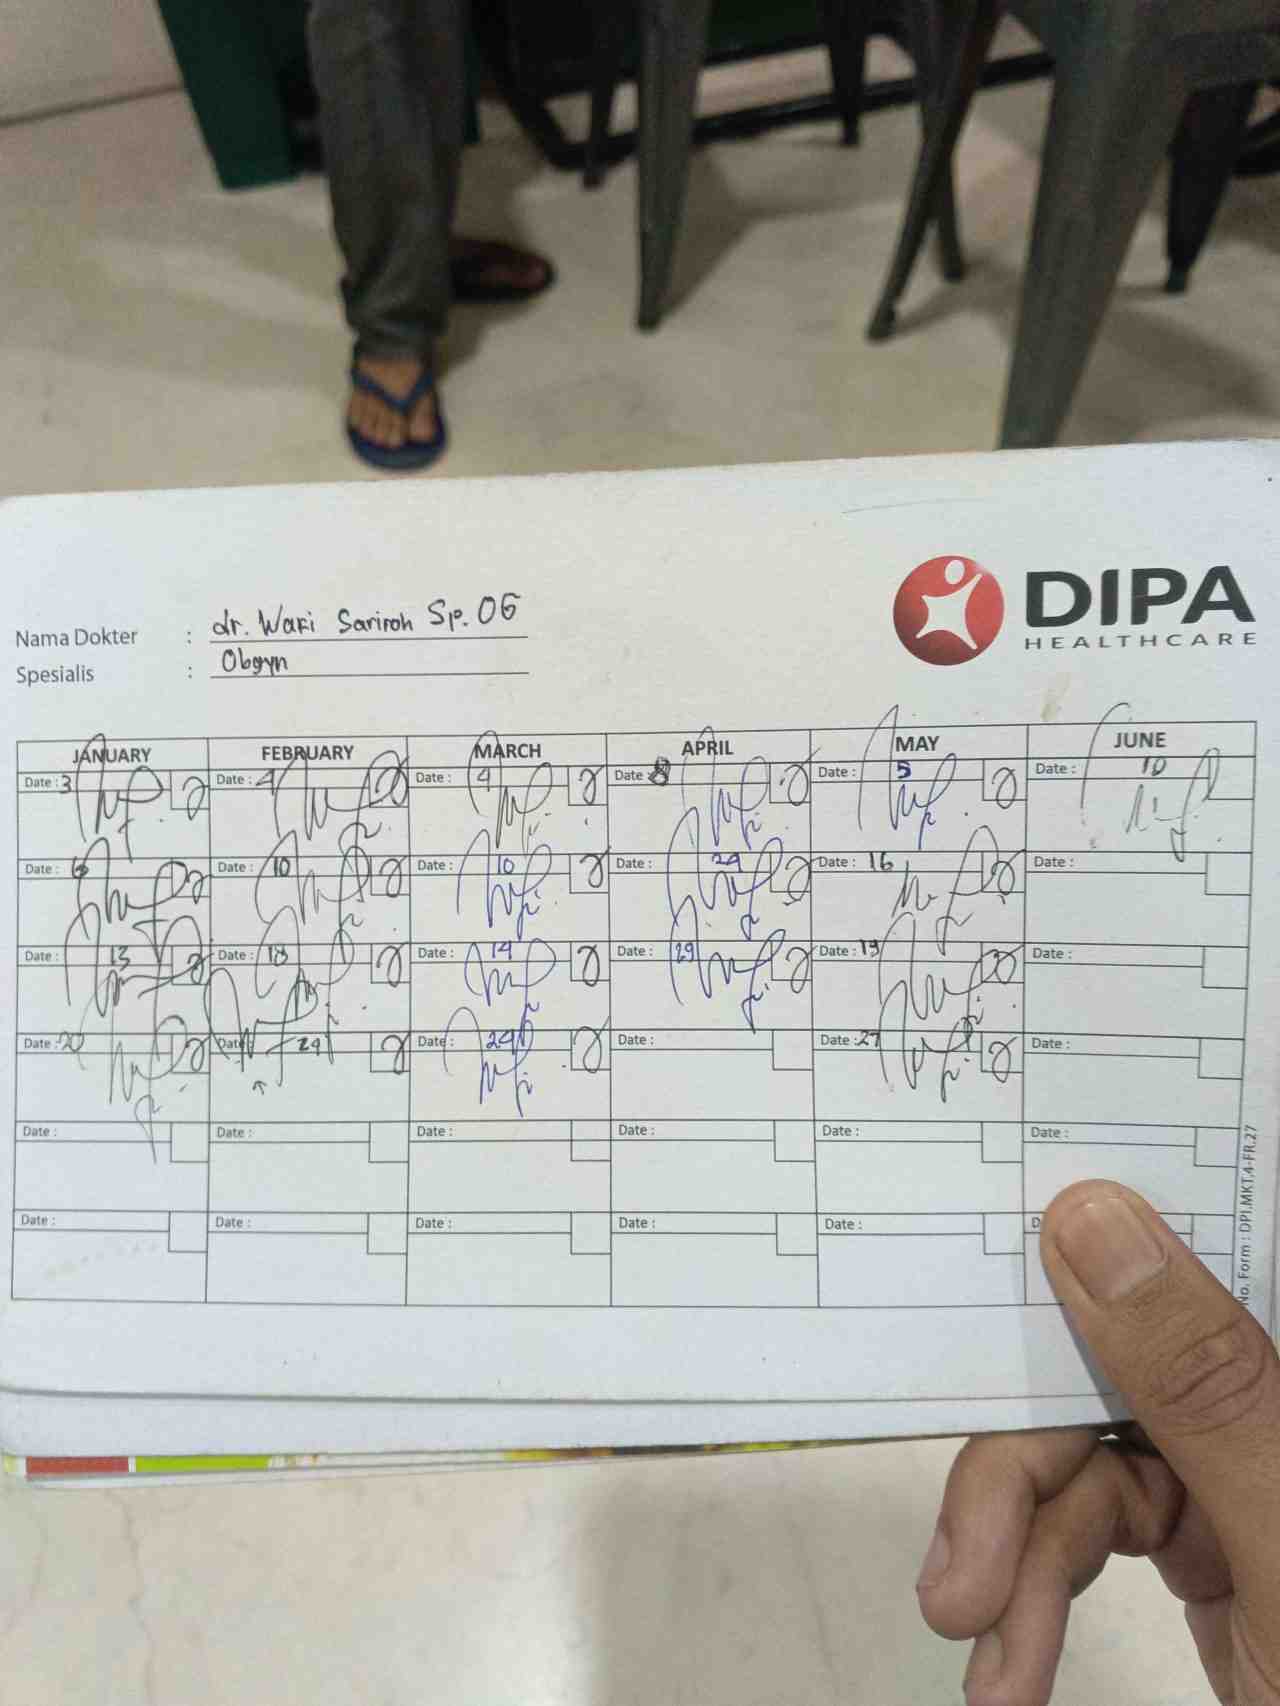 DIPA
HEALTHCARE
Nama Dokter : dr. Waki Sariroh Sp. OG
Spesialis : Obgyn
JANUARY FEBRUARY MARCH APRIL MAY JUNE
Date : 3 Date : 4 Date : 4 Date : 8 Date : 5 Date : 10
Date : 6 Date : 10 Date : 10 Date : 24 Date : 16 Date :
Date : 13 Date : 18 Date : 14 Date : 29 Date : 19 Date :
Date : 20 Date : 24 Date : 24 Date : Date : 27 Date :
Date : Date : Date : Date : Date : Date :
Date : Date : Date : Date : Date : D
No. Form : DPI.MKT.4-FR.27